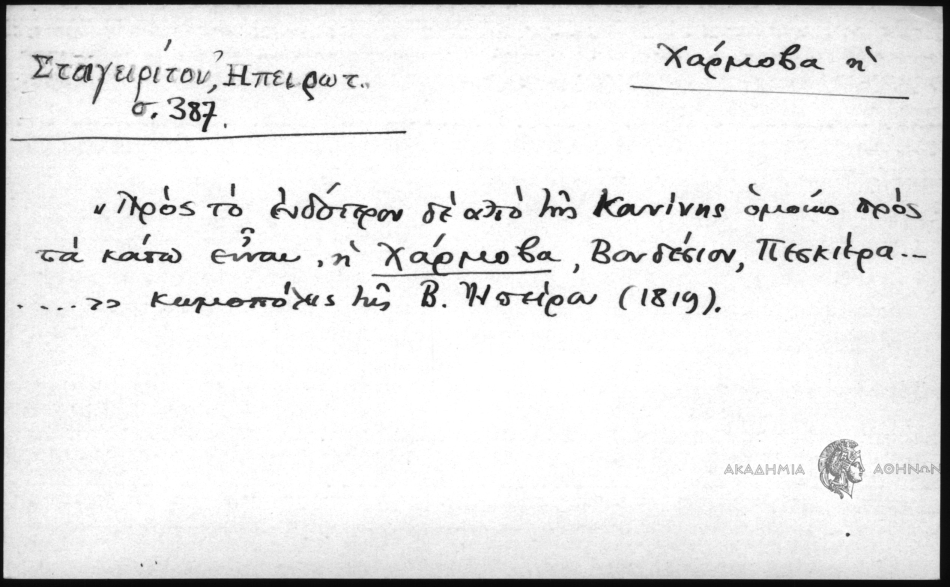 Χάρμοβα ἡ
Σταγειρίτου, Ἠπειρωτ..
σ. 387.
"Πρὸς τὸ ἐνδότερον δὲ ἀπὸ τῆς Κανίνης ὁμοίως πρὸς
τὰ κάτω εἶναι, ἡ Χάρμοβα, Βονδέσιον, Πεσκιέρα...
....» κωμοπόλεις τῆς Β. Ἠπείρου (1819).
ΑΚΑΔΗΜΙΑ ΑΘΗΝΩΝ